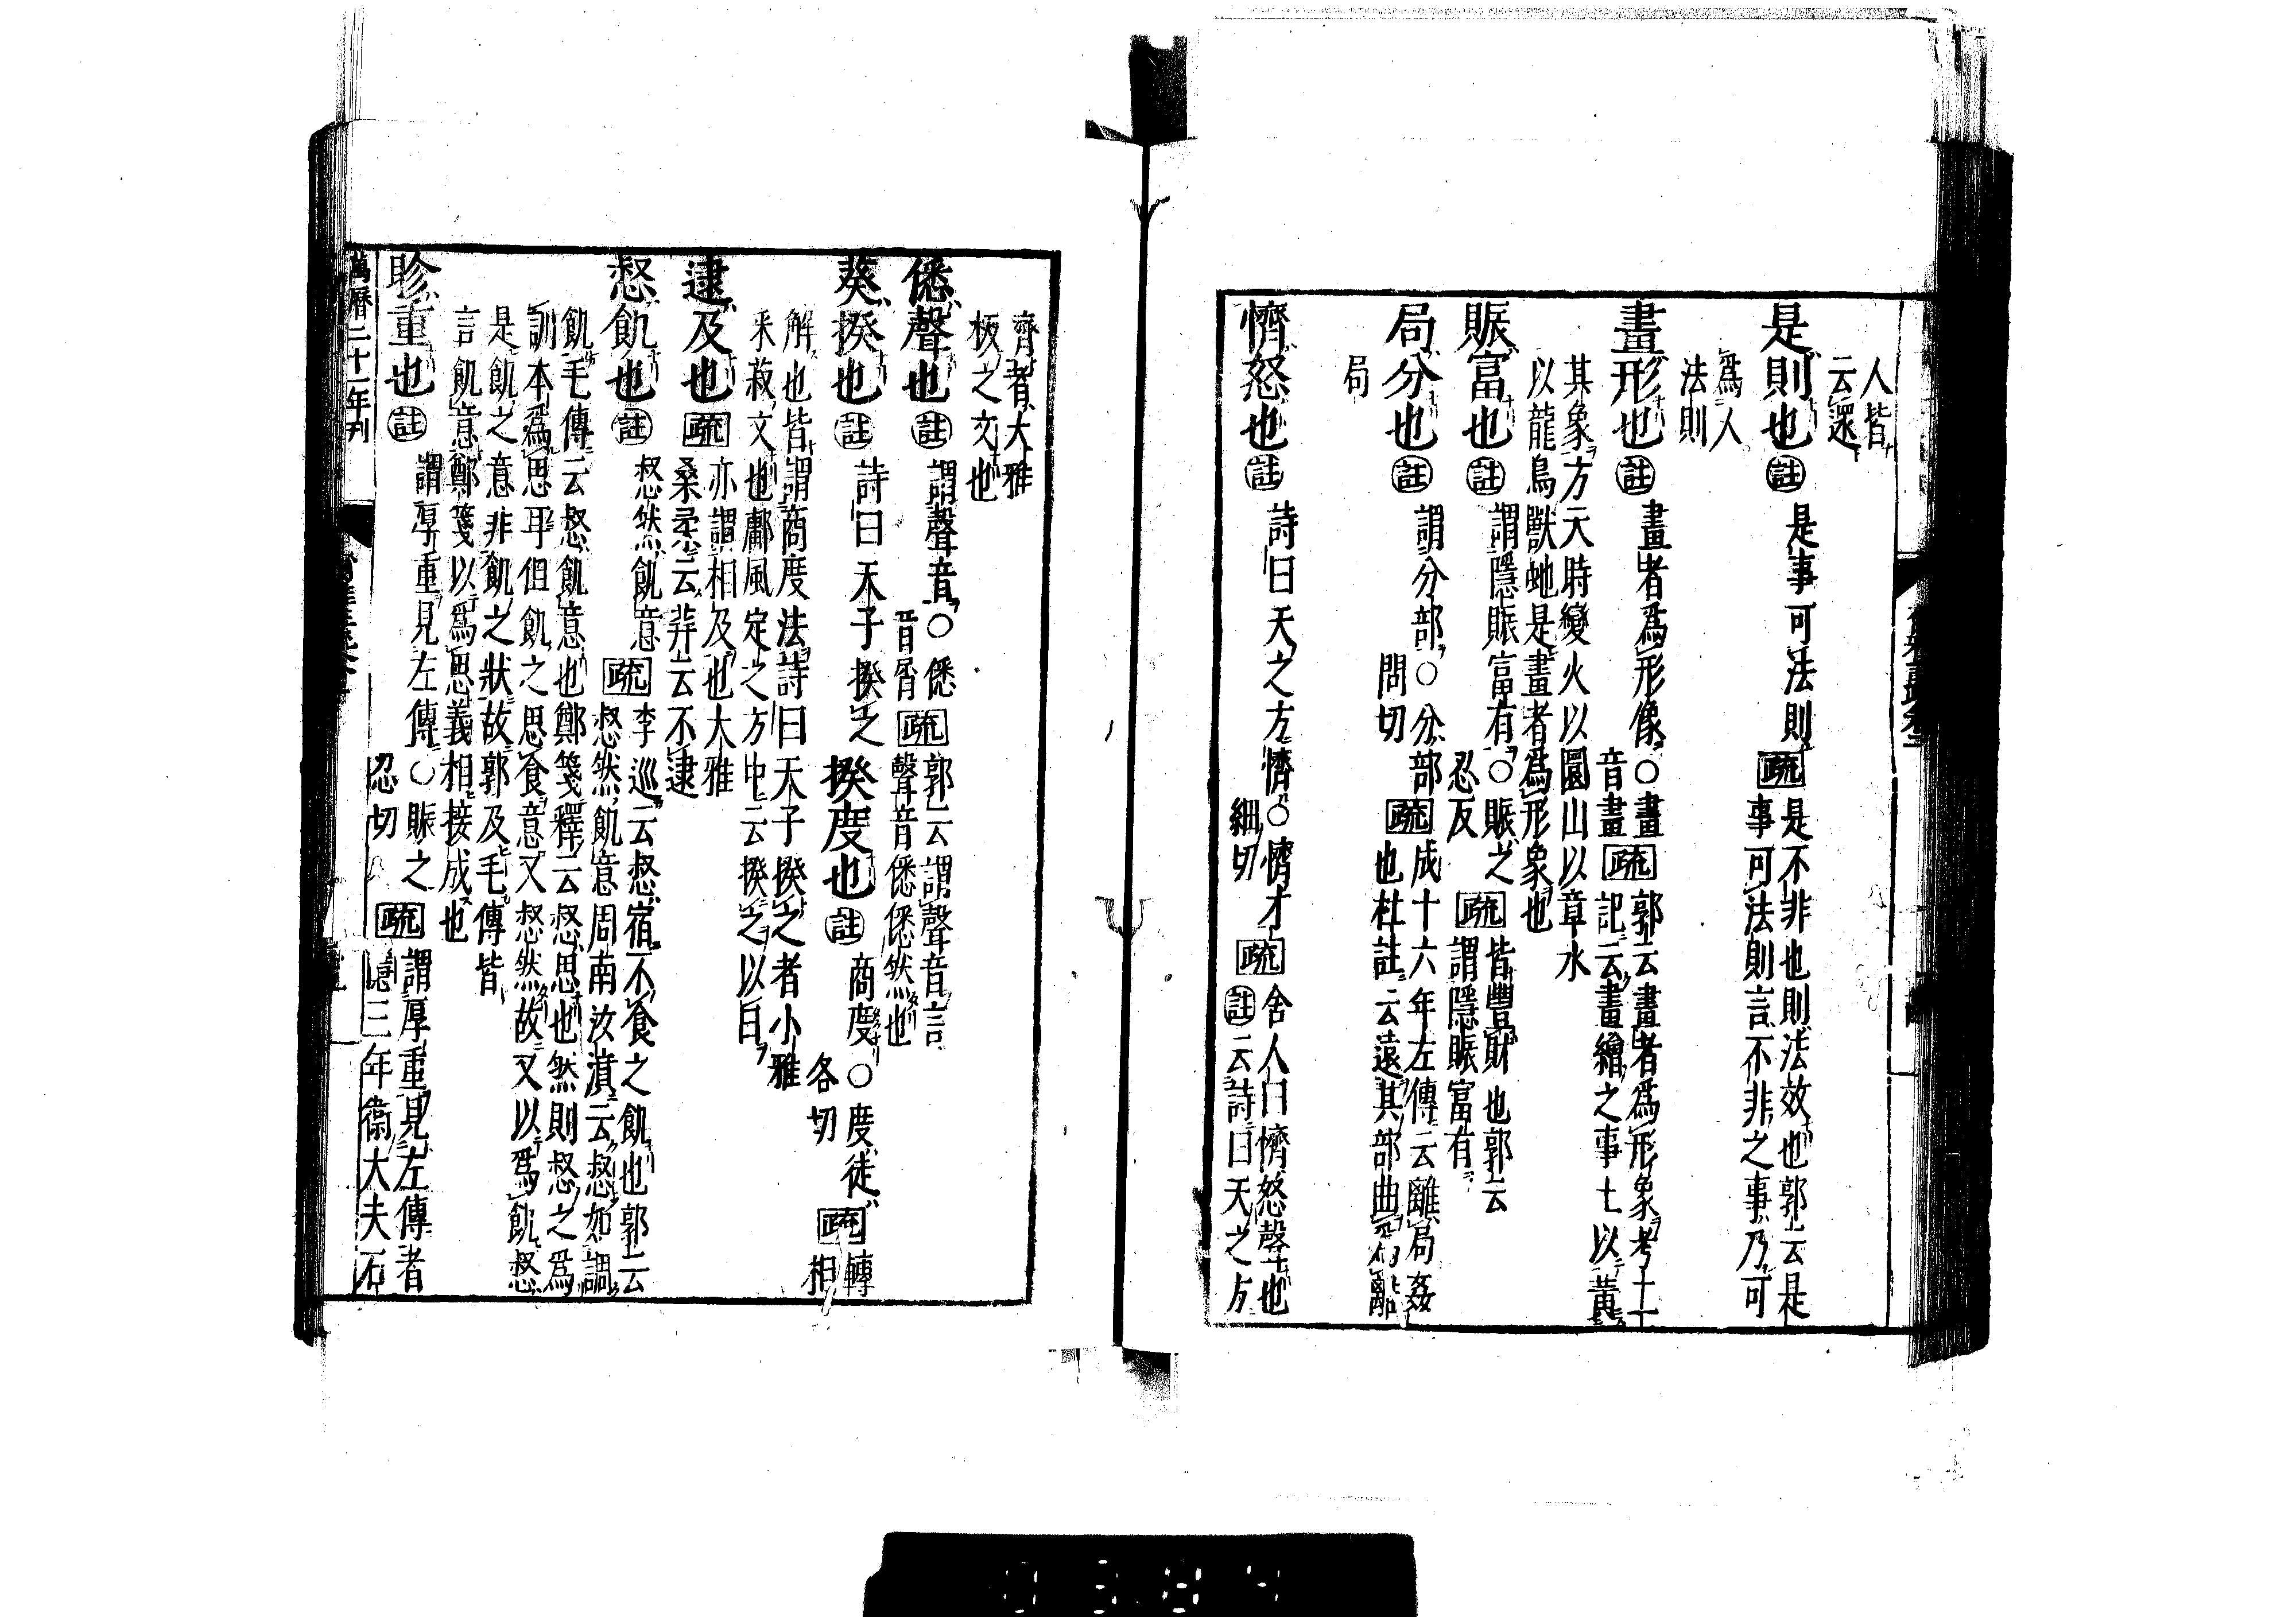 人皆
云還
是則也註是事可法則疏是不非也則法效也郭云是
事可法則言不非之事乃可
爲人
法則
畫形也註畫者爲形像○畫
音畫疏郭云畫者爲形象考工
記云畫繢之事土以黃
其象方天時變火以圜山以章水
以龍鳥獸虵是畫者爲形象也
賑富也註謂隱賑富有○賑之
忍反疏皆豐財也郭云
謂隱賑富有
局分也註謂分部○分部
問切疏成十六年左傳云離局姦
也杜註云遠其部曲爲離
局
懠怒也註詩曰天之方懠○懠才
細切疏舍人曰懠怒聲也
註云詩曰天之方
懠者大雅
板之文也
僁聲也註謂聲音○僁
音屑疏郭云謂聲音言
聲音僁僁然也
葵揆也註詩曰天子揆之揆度也註商度○度徒
各切疏轉
相
解也皆謂商度法詩曰天子揆之者小雅
采菽文也鄘風定之方中云揆之以日
逮及也疏亦謂相及也大雅
桑柔云荓云不逮
惄飢也註惄然飢意疏李巡云惄宿不食之飢也郭云
惄然飢意周南汝濆云惄如調
飢毛傳云惄飢意也鄭箋釋云惄思也然則惄之爲
訓本爲思耳但飢之思食意又惄然故又以爲飢惄
是飢之意非飢之狀故郭及毛傳皆
言飢意鄭箋以爲思義相接成也
眕重也註謂厚重見左傳○賑之
忍切疏謂厚重見左傳者
隱三年衞大夫石
萬曆二十一年刊